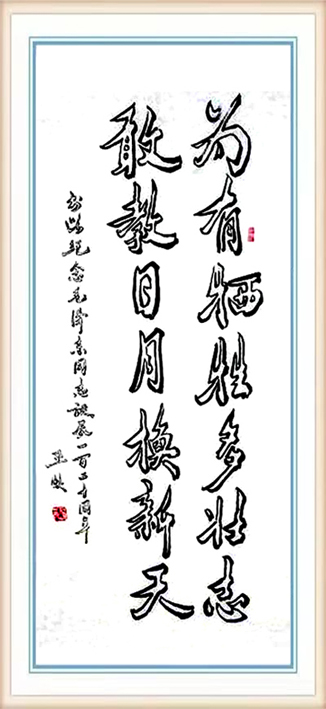 为有牺牲多壮志
敢教日月换新天
纪念毛泽东同志诞辰一百二十周年